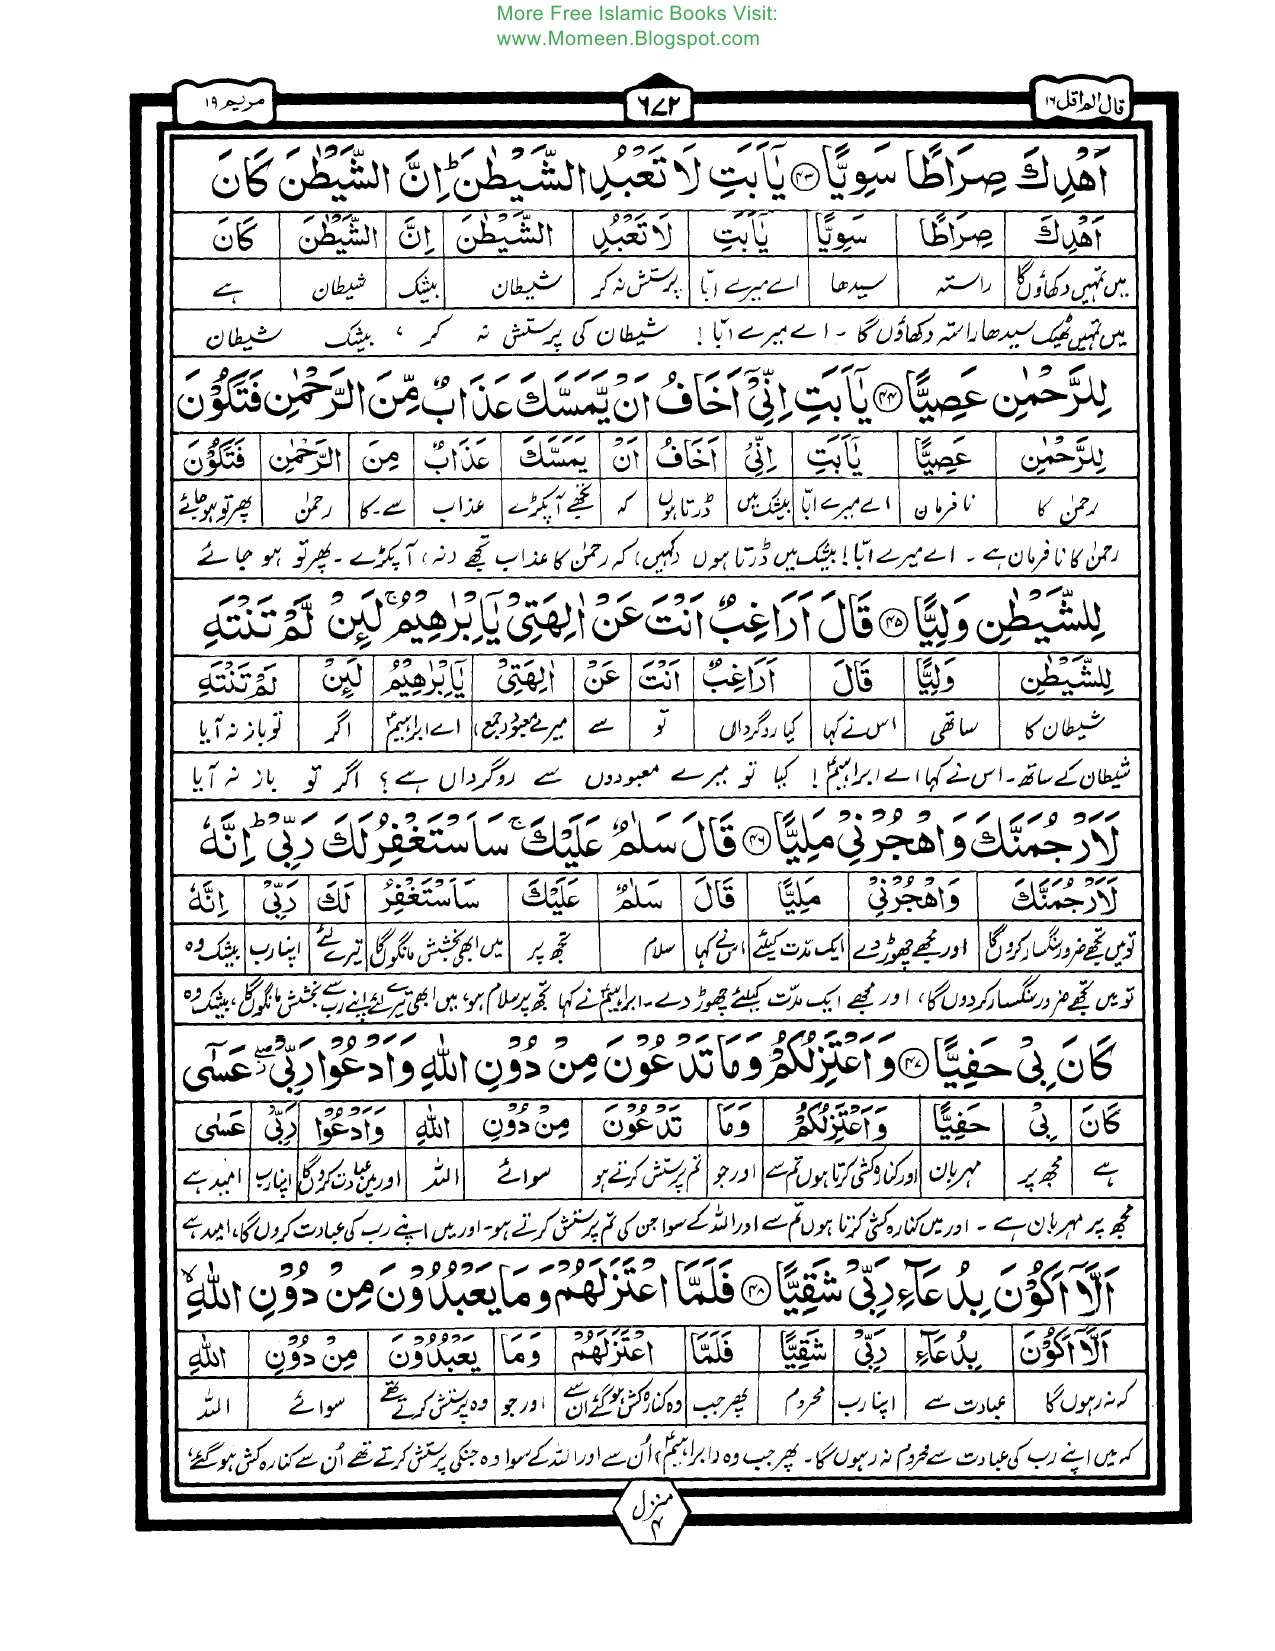 More Free Islamic Books Visit:
www.Momeen.Blogspot.com
قال الم اقل ١٦
٦٧٢
مريم ١٩
اَهْدِكَ صِرَاطًا سَوِيًّا ﴿٤٣﴾ يٰۤاَبَتِ لَا تَعْبُدِ الشَّيْطٰنَ ؕ اِنَّ الشَّيْطٰنَ كَانَ
اَهْدِكَ صِرَاطًا سَوِيًّا يٰۤاَبَتِ لَا تَعْبُدِ الشَّيْطٰنَ اِنَّ الشَّيْطٰنَ كَانَ
میں تمہیں دکھاؤں گا راستہ سیدھا اے میرے ابّا پرستش نہ کر شیطان بیشک شیطان ہے
میں تمہیں ٹھیک سیدھا راستہ دکھاؤں گا ۔ اے میرے ابّا ! شیطان کی پرستش نہ کر ، بیشک شیطان
لِلرَّحْمٰنِ عَصِيًّا ﴿٤٤﴾ يٰۤاَبَتِ اِنِّيْۤ اَخَافُ اَنْ يَّمَسَّكَ عَذَابٌ مِّنَ الرَّحْمٰنِ فَتَكُوْنَ
لِلرَّحْمٰنِ عَصِيًّا يٰۤاَبَتِ اِنِّيْ اَخَافُ اَنْ يَمَسَّكَ عَذَابٌ مِنَ الرَّحْمٰنِ فَتَكُوْنَ
رحمٰن کا نافرمان اے میرے ابّا بیشک میں ڈرتا ہوں کہ تجھے آپکڑے عذاب سے ۔ کا رحمٰن پھر تو ہو جائے
رحمٰن کا نافرمان ہے ۔ اے میرے ابّا ! بیشک میں ڈرتا ہوں (کہیں) کہ رحمٰن کا عذاب تجھے (نہ) آپکڑے ۔ پھر تو ہو جائے
لِلشَّيْطٰنِ وَلِيًّا ﴿٤٥﴾ قَالَ اَرَاغِبٌ اَنْتَ عَنْ اٰلِهَتِيْ يٰۤاِبْرٰهِيْمُ ۚ لَئِنْ لَّمْ تَنْتَهِ
لِلشَّيْطٰنِ وَلِيًّا قَالَ اَرَاغِبٌ اَنْتَ عَنْ اٰلِهَتِيْ يٰۤاِبْرٰهِيْمُ لَئِنْ لَمْ تَنْتَهِ
شیطان کا ساتھی اس نے کہا کیا روگرداں تو سے میرے معبود (جمع) اے ابراہیمؑ اگر تو باز نہ آیا
شیطان کے ساتھ ۔ اس نے کہا اے ابراہیمؑ ! کیا تو میرے معبودوں سے روگرداں ہے ؟ اگر تو باز نہ آیا
لَاَرْجُمَنَّكَ وَاهْجُرْنِيْ مَلِيًّا ﴿٤٦﴾ قَالَ سَلٰمٌ عَلَيْكَ ۚ سَاَسْتَغْفِرُ لَكَ رَبِّيْ ؕ اِنَّهٗ
لَاَرْجُمَنَّكَ وَاهْجُرْنِيْ مَلِيًّا قَالَ سَلٰمٌ عَلَيْكَ سَاَسْتَغْفِرُ لَكَ رَبِّيْ اِنَّهٗ
تو میں تجھے ضرور سنگسار کروں گا اور مجھے چھوڑ دے ایک مدت کیلئے اس نے کہا سلام تجھ پر میں ابھی بخشش مانگوں گا تیرے لئے اپنا رب بیشک وہ
تو میں تجھے ضرور سنگسار کردوں گا، اور مجھے ایک مدت کیلئے چھوڑ دے ۔ ابراہیمؑ نے کہا تجھ پر سلام ہو، میں ابھی تیرے لئے اپنے رب سے بخشش مانگوں گا، بیشک وہ
كَانَ بِيْ حَفِيًّا ﴿٤٧﴾ وَاَعْتَزِلُكُمْ وَمَا تَدْعُوْنَ مِنْ دُوْنِ اللّٰهِ وَاَدْعُوْا رَبِّيْ ۖ عَسٰۤى
كَانَ بِيْ حَفِيًّا وَاَعْتَزِلُكُمْ وَمَا تَدْعُوْنَ مِنْ دُوْنِ اللّٰهِ وَاَدْعُوْا رَبِّيْ عَسٰۤى
ہے مجھ پر مہربان اور کنارہ کشی کرتا ہوں تم سے اور جو تم پرستش کرتے ہو سوائے اللہ اور میں عبادت کروں گا اپنا رب امید ہے
مجھ پر مہربان ہے ۔ اور میں کنارہ کشی کرتا ہوں تم سے اور اللہ کے سوا جن کی تم پرستش کرتے ہو ۔ اور میں اپنے رب کی عبادت کروں گا، امید ہے
اَلَّاۤ اَكُوْنَ بِدُعَآءِ رَبِّيْ شَقِيًّا ﴿٤٨﴾ فَلَمَّا اعْتَزَلَهُمْ وَمَا يَعْبُدُوْنَ مِنْ دُوْنِ اللّٰهِ ۙ
اَلَّاۤ اَكُوْنَ بِدُعَآءِ رَبِّيْ شَقِيًّا فَلَمَّا اعْتَزَلَهُمْ وَمَا يَعْبُدُوْنَ مِنْ دُوْنِ اللّٰهِ
کہ نہ رہوں گا عبادت سے اپنا رب محروم پھر جب وہ کنارہ کش ہو گئے ان سے اور جو وہ پرستش کرتے تھے سوائے اللہ
کہ میں اپنے رب کی عبادت سے محروم نہ رہوں گا ۔ پھر جب وہ (ابراہیمؑ) اُن سے اور اللہ کے سوا وہ جنکی پرستش کرتے تھے اُن سے کنارہ کش ہو گئے،
منزل ٤